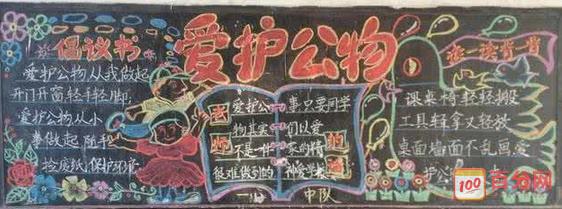 倡议书
爱护公物从我做起
开门开窗轻手轻脚
爱护公物从小
事做起 随手
捡废纸保护环境
爱护公物
爱护公
物其实
不是一件
很难做到的
事只要同学
们以爱
家的精
神爱学校
中队
读一读背一背
课桌椅轻轻搬
工具轻拿又轻放
桌面墙面不乱画
100
百分网